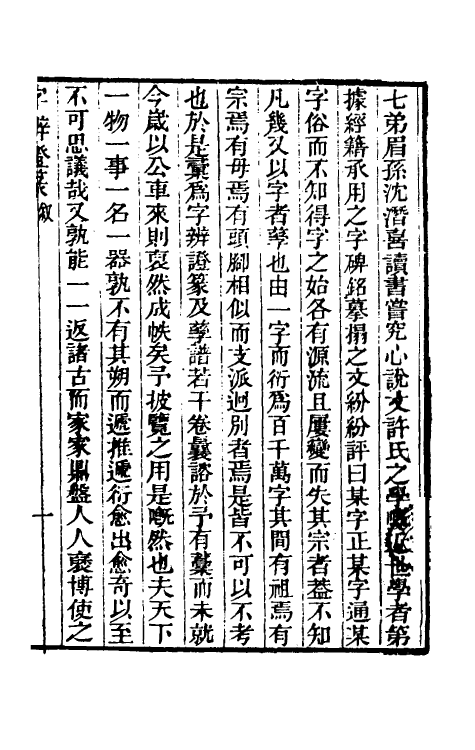 七弟眉孫沈潛喜讀書嘗究心說文許氏之學學者第
據經籍承用之字碑銘摹搨之文紛紛評曰某字正某字通某
字俗而不知得字之始各有源流且屢變而失其宗者葢不知
凡幾又以字者孳也由一字而衍爲百千萬字其間有祖焉有
宗焉有毋焉有頭腳相似而支派迥別者焉是皆不可以不考
也於是彚爲字辨證篆及孳譜若干卷曩諮於予有藁而未就
今歲以公車來則裒然成帙矣予披覽之用是嘅然也夫天下
一物一事一名一器孰不有其朔而遞推遞衍愈出愈奇以至
不可思議哉又孰能一一返諸古而家家鼎盤人人褒博使之
字辨證篆敘
一